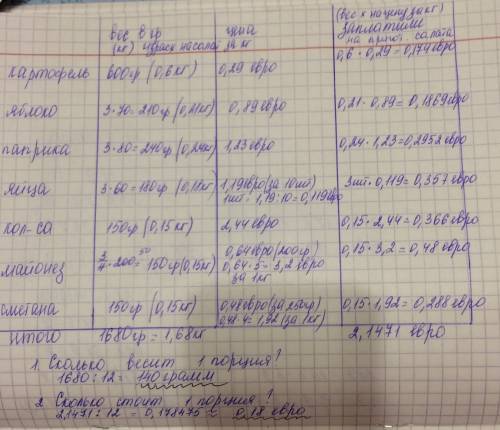 вес в гр цена (вес х на цену за кг)
(кг) израсх на салат за кг заплатили
на пригот. салата
картофель 600гр (0,6кг) 0,29 евро 0,6 · 0,29 = 0,174 евро
яблоко 3·70=210гр (0,21кг) 0,89 евро 0,21 · 0,89 = 0,1869 евро
паприка 3·80=240гр (0,24кг) 1,23 евро 0,24 · 1,23 = 0,2952 евро
яйца 3·60=180гр (0,18кг) 1,19 евро (за 10шт) 3шт · 0,119 = 0,357 евро
1шт - 1,19:10=0,119 евро
кол-са 150гр (0,15кг) 2,44 евро 0,15 · 2,44 = 0,366 евро
майонез 3/4 · 200 = 150гр (0,15кг) 0,64 евро (200гр) 0,15 · 3,2 = 0,48 евро
50 0,64 · 5 = 3,2 евро
за 1 кг
сметана 150гр (0,15кг) 0,48 евро (за 250гр) 0,15 · 1,92 = 0,288 евро
0,48·4=1,92 (за 1кг)
итого 1680гр = 1,68кг 2,1471 евро
1. Сколько весит 1 порция?
1680 : 12 = 140 грамм
2 Сколько стоит 1 порция?
2,1471 : 12 = 0,178475 ≈ 0,18 евро